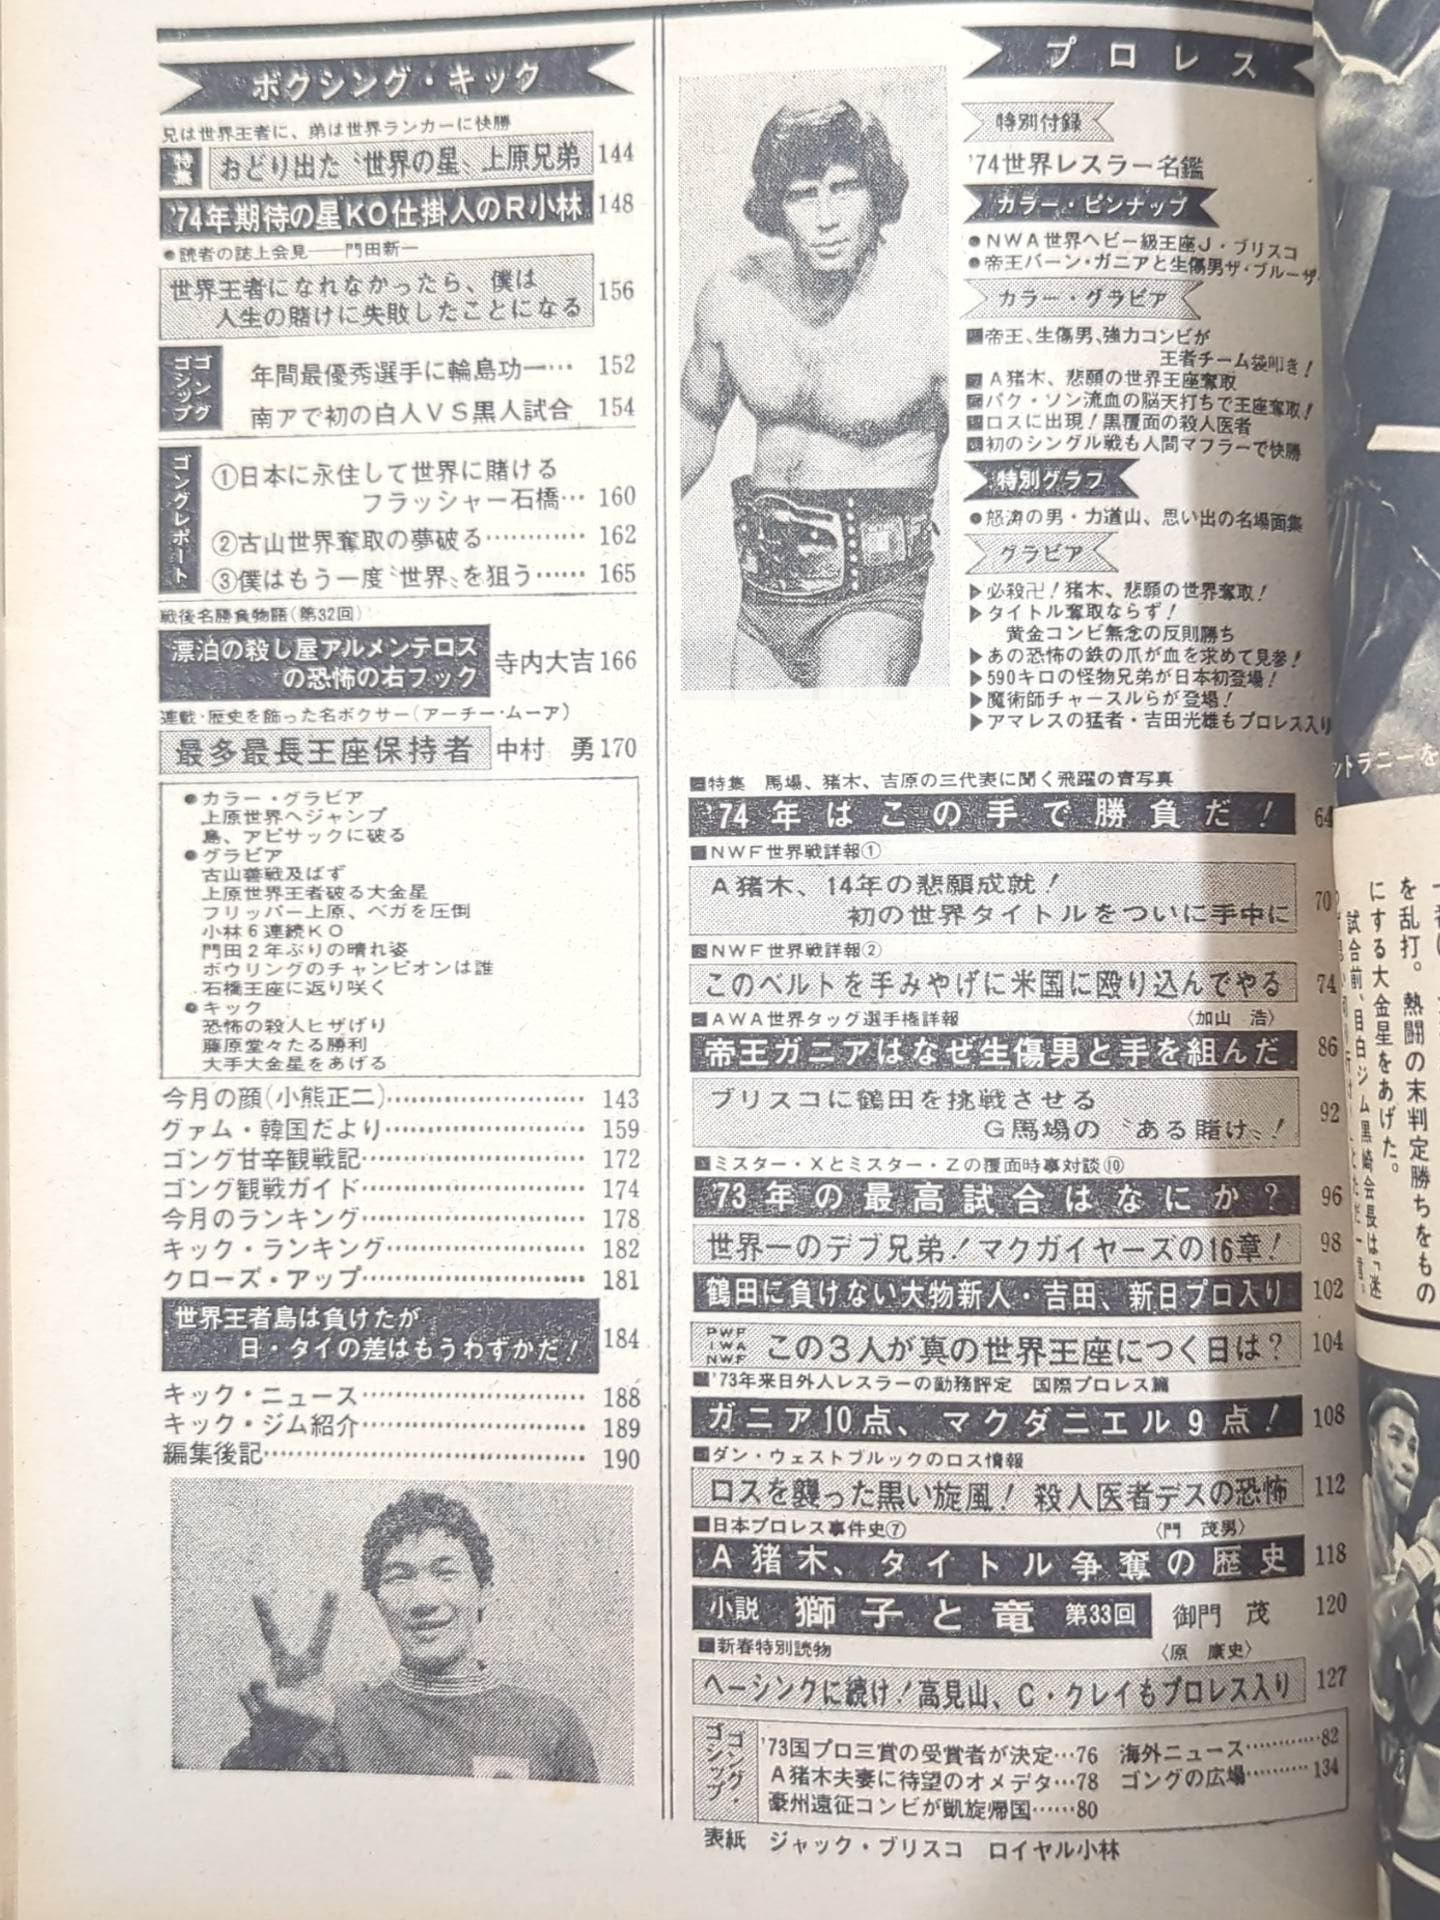 ボクシング・キック
兄は世界王者に、弟は世界ランカーに快勝
特集 おどり出た〝世界の星〟上原兄弟 144
'74年期待の星KO仕掛人のR小林 148
●読者の誌上会見──門田新一
世界王者になれなかったら、僕は
人生の賭けに失敗したことになる 156
ゴングゴシップ
年間最優秀選手に輪島功一… 152
南アで初の白人VS黒人試合 154
ゴングレポート
①日本に永住して世界に賭ける
フラッシャー石橋… 160
②古山世界奪取の夢破る………… 162
③僕はもう一度〝世界〟を狙う…… 165
戦後名勝負物語(第32回)
漂泊の殺し屋アルメンテロス
の恐怖の右フック 寺内大吉 166
連載・歴史を飾った名ボクサー(アーチー・ムーア)
最多最長王座保持者 中村 勇 170
●カラー・グラビア
上原世界へジャンプ
島、アピサックに破る
●グラビア
古山善戦及ばず
上原世界王者破る大金星
フリッパー上原、ベガを圧倒
小林6連続KO
門田2年ぶりの晴れ姿
ボウリングのチャンピオンは誰
石橋王座に返り咲く
●キック
恐怖の殺人ヒザげり
藤原堂々たる勝利
大手大金星をあげる
今月の顔(小熊正二)…………………… 143
グァム・韓国だより…………………… 159
ゴング甘辛観戦記…………………… 172
ゴング観戦ガイド…………………… 174
今月のランキング…………………… 178
キック・ランキング………………… 182
クローズ・アップ…………………… 181
世界王者島は負けたが
日・タイの差はもうわずかだ! 184
キック・ニュース…………………… 188
キック・ジム紹介…………………… 189
編集後記……………………………… 190
プロレス
特別付録
'74世界レスラー名鑑
カラー・ピンナップ
●NWA世界ヘビー級王座J・ブリスコ
●帝王バーン・ガニアと生傷男ザ・ブルーザー
カラー・グラビア
■帝王、生傷男、強力コンビが
王者チーム袋叩き!
■A猪木、悲願の世界王座奪取
■パク・ソン流血の脳天打ちで王座奪取!
■ロスに出現!黒覆面の殺人医者
■初のシングル戦も人間マフラーで快勝
特別グラフ
●怒濤の男・力道山、思い出の名場面集
グラビア
▶必殺卍!猪木、悲願の世界奪取!
▶タイトル奪取ならず!
黄金コンビ無念の反則勝ち
▶あの恐怖の鉄の爪が血を求めて見参!
▶590キロの怪物兄弟が日本初登場!
▶魔術師チャースルらが登場!
▶アマレスの猛者・吉田光雄もプロレス入り
■特集 馬場、猪木、吉原の三代表に聞く飛躍の青写真
'74年はこの手で勝負だ! 64
■NWF世界戦詳報①
A猪木、14年の悲願成就!
初の世界タイトルをついに手中に 70
■NWF世界戦詳報②
このベルトを手みやげに米国に殴り込んでやる 74
■AWA世界タッグ選手権詳報 〈加山 浩〉
帝王ガニアはなぜ生傷男と手を組んだ 86
ブリスコに鶴田を挑戦させる
G馬場の〝ある賭け〟! 92
■ミスター・Xとミスター・Zの覆面時事対談⑩
'73年の最高試合はなにか? 96
世界一のデブ兄弟!マクガイヤーズの16章! 98
鶴田に負けない大物新人・吉田、新日プロ入り 102
PWF
IWA
NWF
この3人が真の世界王座につく日は? 104
■'73年来日外人レスラーの勤務評定 国際プロレス篇
ガニア10点、マクダニエル9点! 108
■ダン・ウェストブルックのロス情報
ロスを襲った黒い旋風!殺人医者デスの恐怖 112
■日本プロレス事件史⑦ 〈門 茂男〉
A猪木、タイトル争奪の歴史 118
小説 獅子と竜 第33回 御門 茂 120
■新春特別読物 〈原 康史〉
ヘーシンクに続け!高見山、C・クレイもプロレス入り 127
ゴング・ゴシップ
'73国プロ三賞の受賞者が決定…76
A猪木夫妻に待望のオメデタ…78
豪州遠征コンビが凱旋帰国……80
海外ニュース…………82
ゴングの広場…………134
表紙 ジャック・ブリスコ ロイヤル小林
ントラニーを
を乱打。熱闘の末判定勝ちをもの
にする大金星をあげた。
試合前、目白ジム黒崎会長は「迷